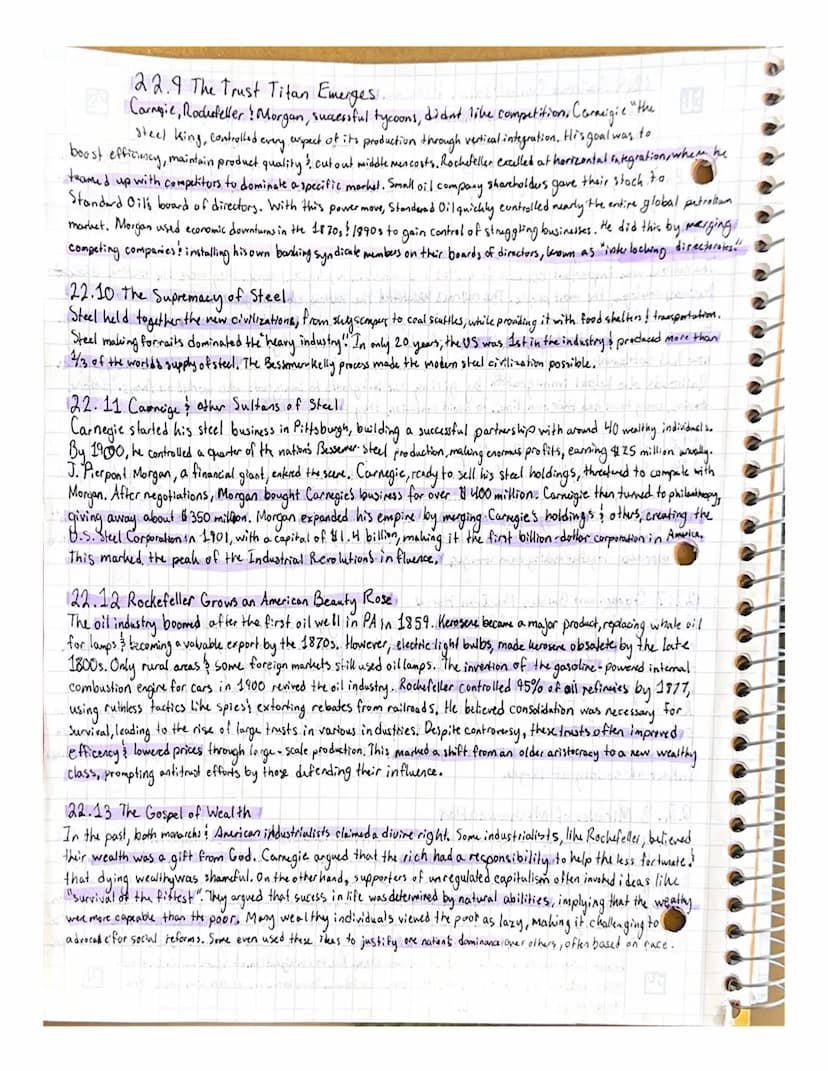 22.9 The Trust Titan Emerges
Carnegie, Rockefeller & Morgan, successful tycoons, didnt like competition. Carneigie "the
steel king, controlled every aspect of its production through vertical integration. His goal was to
boost efficiency, maintain product quality & cut out middle men costs. Rockefeller excelled at horizontal integration, where he
teamed up with competitors to dominate a specific market. Small oil company shareholders gave their stock to
Standard Oil's board of directors. With this power move, Standard Oil quickly controlled nearly the entire global petroleum
market. Morgan used economic downturns in the 1870s & 1890s to gain control of struggling businesses. He did this by merging
competing companies & installing his own banking syndicate members on their boards of directors, known as "interlocking directorates."
22.10 The Supremacy of Steel
Steel held together the new civilizations, from skyscraper to coal scuttles, while providing it with food shelter & transportation.
Steel making for rails dominated the "heavy industry". In only 20 years, the US was 1st in the industry & produced more than
1/3 of the world's supply of steel. The Bessemer-Kelly process made the modern steel civilization possible.
22.11 Carneige & other Sultans of Steel
Carnegie started his steel business in Pittsburgh, building a successful partnership with around 40 wealthy individuals.
By 1900, he controlled a quarter of the nation's Bessemer steel production, making enormous profits, earning $25 million annually.
J. Pierpont Morgan, a financial giant, entered the scene. Carnegie, ready to sell his steel holdings, threatened to compete with
Morgan. After negotiations, Morgan bought Carnegie's business for over $400 million. Carneigie then turned to philanthropy,
giving away about $350 million. Morgan expanded his empire by merging Carnegie's holdings & others, creating the
U.S. Steel Corporation in 1901, with a capital of $1.4 billion, making it the first billion-dollar corporation in America.
This marked the peak of the Industrial Revolution's influence.
22.12 Rockefeller Grows an American Beauty Rose
The oil industry boomed after the first oil well in PA in 1859. Kerosene became a major product, replacing whale oil
for lamps & becoming a valuable export by the 1870s. However, electric light bulbs, made kerosene obsolete by the late
1800s. Only rural areas & some foreign markets still used oil lamps. The invention of the gasoline-powered internal
combustion engine for cars in 1900 revived the oil industry. Rockefeller controlled 95% of oil refineries by 1877,
using ruthless tactics like spies & extorting rebates from railroads. He believed consolidation was necessary for
survival, leading to the rise of large trusts in various industries. Despite controversy, these trusts often improved
efficency & lowered prices through large-scale production. This marked a shift from an older aristocracy to a new wealthy
class, prompting antitrust efforts by those defending their influence.
22.13 The Gospel of Wealth
In the past, both monarchs & American industrialists claimed a divine right. Some industrialists, like Rockefeller, believed
their wealth was a gift from God. Carnegie argued that the rich had a responsibility to help the less fortunate &
that dying wealthy was shameful. On the other hand, supporters of unregulated capitalism often invoked ideas like
"survival of the fittest". They argued that sucess in life was determined by natural abilities, implying that the wealthy
were more capeable than the poor. Many wealthy individuals viewed the poor as lazy, making it challenging to
advocate for social reforms. Some even used these ideas to justify one nation's dominance over others, often based on race.